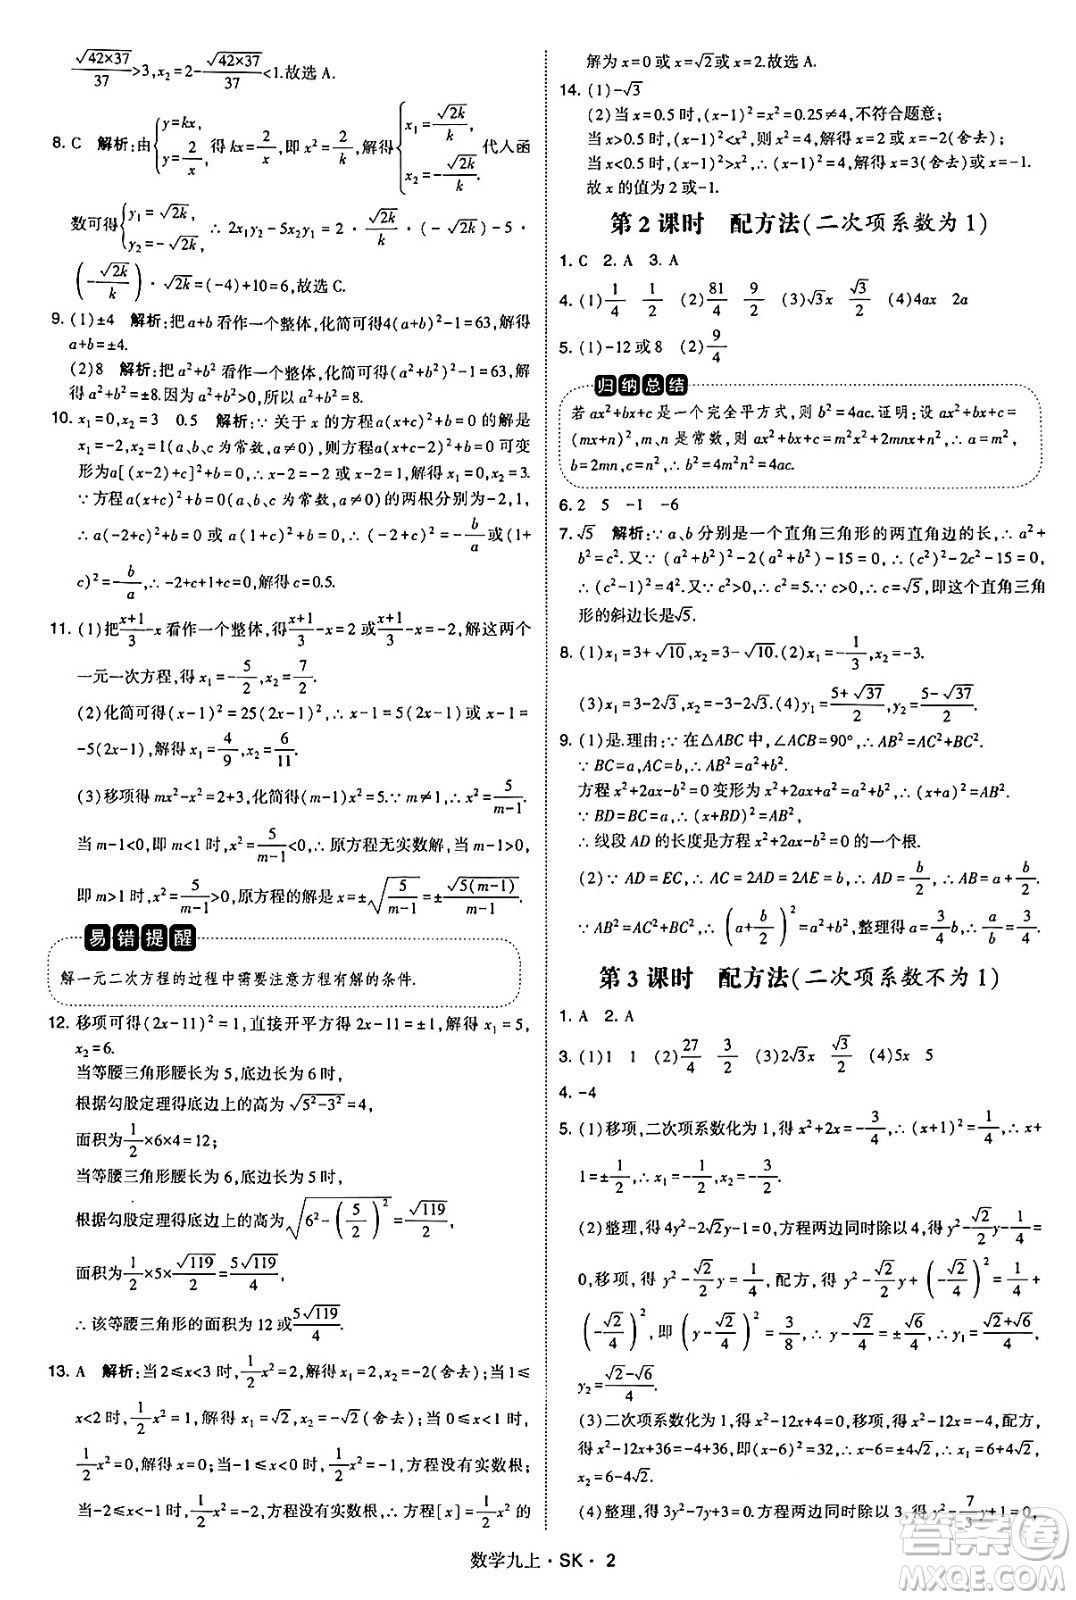 √(42×37)/37>3,x₂=2-√(42×37)/37<1.故选A.
8. C 解析:由{y=kx, y=2/x,得kx=2/x,即x²=2/k,解得{x₁=√(2k)/k, x₂=-√(2k)/k. 代入函
数可得{y₁=√(2k), y₂=-√(2k), ∴2x₁y₂-5x₂y₁=2·√(2k)/k·(-√(2k))-5·
(-√(2k)/k)·√(2k)=(-4)+10=6,故选C.
9. (1)±4 解析:把a+b看作一个整体,化简可得4(a+b)²-1=63,解得
a+b=±4.
(2)8 解析:把a²+b²看作一个整体,化简可得(a²+b²)²-1=63,解
得a²+b²=±8.因为a²+b²>0,所以a²+b²=8.
10. x₁=0,x₂=3 0.5 解析:∵关于x的方程a(x+c)²+b=0的解是
x₁=-2,x₂=1(a、b、c为常数,a≠0),∴方程a(x+c-2)²+b=0可变
形为a[(x-2)+c]²+b=0,∴x-2=-2或x-2=1,解得x=0或x=3.
∵方程a(x+c)²+b=0(a、b、c为常数,a≠0)的两根分别为-2,1,
∴a(-2+c)²+b=0,a(1+c)²+b=0,∴(-2+c)²=-b/a,(1+
c)²=-b/a,∴-2+c+1+c=0,解得c=0.5.
11. (1)把(x+1)/3-x看作一个整体,得(x+1)/3-x=2或(x+1)/3-x=-2,解这两个
一元一次方程,得x₁=-5/2,x₂=7/2.
(2)化简可得(x-1)²=25(2x-1)²,∴x-1=5(2x-1)或x-1=
-5(2x-1),解得x₁=4/9,x₂=6/11.
(3)移项得mx²-x²=2+3,化简得(m-1)x²=5.∵m≠1,∴x²=5/(m-1).
当m-1<0,即m<1时,x²=5/(m-1)<0,∴原方程无实数解,当m-1>0,
即m>1时,x²=5/(m-1)>0,原方程的实数解为x=±√(5/(m-1))=±√(5(m-1))/(m-1).
易错提醒
解一元二次方程的过程中需要注意方程有解的条件.
12. 移项可得(2x-11)²=1,直接开平方得2x-11=±1,解得x₁=5,
x₂=6.
当等腰三角形腰长为5,底边长为6时,
根据勾股定理得底边上的高为√(5²-3²)=4,
面积为1/2×6×4=12;
当等腰三角形腰长为6,底边长为5时,
根据勾股定理得底边上的高为√(6²-(5/2)²)=√119/2,
面积为1/2×5×√119/2=5√119/4,
∴该等腰三角形的面积为12或5√119/4.
13. A 解析:当2≤x<3时,1/2x²=2,解得x₁=2,x₂=-2(舍去);当1≤
x<2时,1/2x²=1,解得x₁=√2,x₂=-√2(舍去);当0≤x<1时,
1/2x²=0,解得x=0;当-1≤x<0时,1/2x²=-1,方程没有实数根;
当-2≤x<-1时,1/2x²=-2,方程没有实数根,∴方程[x]=1/2x²的
解为x=0或x=√2或x=2.故选A.
14. (1)-√3
(2)当x=0.5时,(x-1)²=x²=0.25≠4,不符合题意;
当x>0.5时,(x-1)²<x²,则x²=4,解得x=2或x=-2(舍去);
当x<0.5时,(x-1)²>x²,∴(x-1)²=4,解得x=3(舍去)或x=-1.
故x的值为2或-1.
第2课时 配方法(二次项系数为1)
1. C 2. A 3. A
4. (1)1/4 1/2 (2)81/4 9/2 (3)√3x √3/2 (4)4ax 2a
5. (1)-12或8 (2)9/4
归纳总结
若ax²+bx+c是一个完全平方式,则b²=4ac.证明:设ax²+bx+c=
(mx+n)²,m、n是常数,则ax²+bx+c=m²x²+2mnx+n²,∴a=m²,
b=2mn,c=n²,∴b²=4m²n²=4ac.
6. 2 5 -1 -6
7. √5 解析:∵a、b分别是一个直角三角形的两直角边的长,∴a²+
b²=c².又∵(a²+b²)²-2(a²+b²)-15=0,∴(c²)²-2c²-15=0,
∴(c²-1)²=4².又∵c²>0,∴c²=5.又∵c>0,∴c=√5,即这个直角三角
形的斜边长是√5.
8. (1)x₁=3+√10,x₂=3-√10. (2)x₁=-1/3,x₂=-3.
(3)x₁=3-2√3,x₂=-3-2√3. (4)y₁=(5+√37)/2,y₂=(5-√37)/2.
9. (1)是.理由:∵在△ABC中,∠ACB=90°,∴AC²+BC²=AB².
∵BC=a,AC=b,∴a²+b²=AB².
方程x²+2ax-b²=0变形为(x+a)²=a²+b²=AB².
∵BD=BC=a,∴(x+BD)²=AB²,
∴线段AD的长度是方程x²+2ax-b²=0的一个根.
(2)∵AD=EC,∴AC=2AD=2AE=b,∴AD=b/2,∴AB=a+b/2.
∵AB²=AC²+BC²,∴(a+b/2)²=a²+b²,整理得a=3/4b,∴a/b=3/4.
第3课时 配方法(二次项系数不为1)
1. A 2. A
3. (1)1 1 (2)27/4 3/2 (3)2√3x √3/2 (4)5x 5
4. -4
5. (1)移项,二次项系数化为1,得x²+2x=-3/4,∴(x+1)²=1/4,∴x+
1=±1/2,∴x₁=-1/2,x₂=-3/2.
(2)整理,得4y²-2√2y-1=0,方程两边同时除以4,得y²-√2/2y-1/4=
0,移项,得y²-√2/2y=1/4,配方,得y²-√2/2y+(-√2/4)²=1/4+
(-√2/4)²,即(y-√2/4)²=3/8,∴y-√2/4=±√6/4,∴y₁=(√2+√6)/4,
y₂=(√2-√6)/4.
(3)二次项系数化为1,得x²-12x+4=0,移项,得x²-12x=-4,配方,
得x²-12x+36=-4+36,即(x-6)²=32,∴x-6=±4√2,∴x₁=6+4√2,
x₂=6-4√2.
(4)整理,得3y²-7y+3=0.方程两边同时除以3,得y²-7/3y+1=0,
数学九上·SK·2
答案圈
MXQE.COM